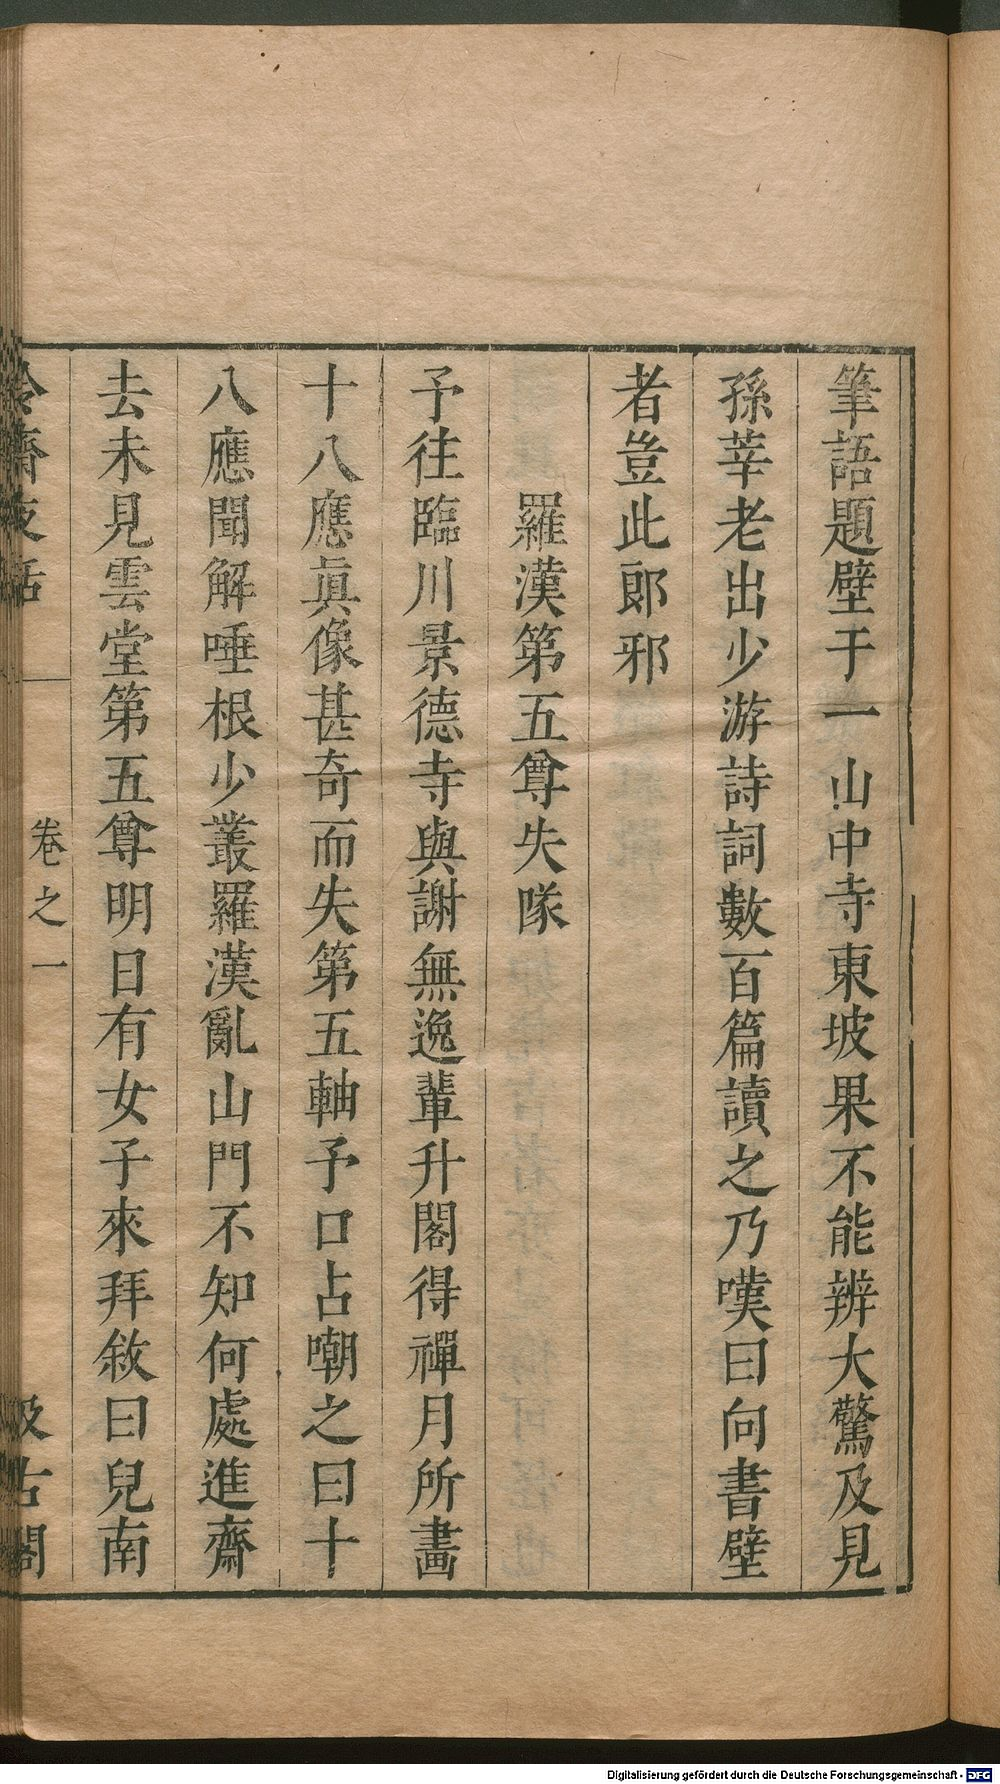 筆語題壁于一山中寺東坡果不能辨大驚及見
孫莘老出少游詩詞數百篇讀之乃嘆曰向書壁
者豈此郎邪
羅漢第五尊失隊
予往臨川景德寺與謝無逸輩升閣得禪月所畵
十八應眞像甚奇而失第五軸予口占嘲之曰十
八應聞解唾根少叢羅漢亂山門不知何處進齋
去未見雲堂第五尊明日有女子來拜敘曰兒南
冷齋夜話 卷之一 汲古閣
Digitalisierung gefördert durch die Deutsche Forschungsgemeinschaft - DFG